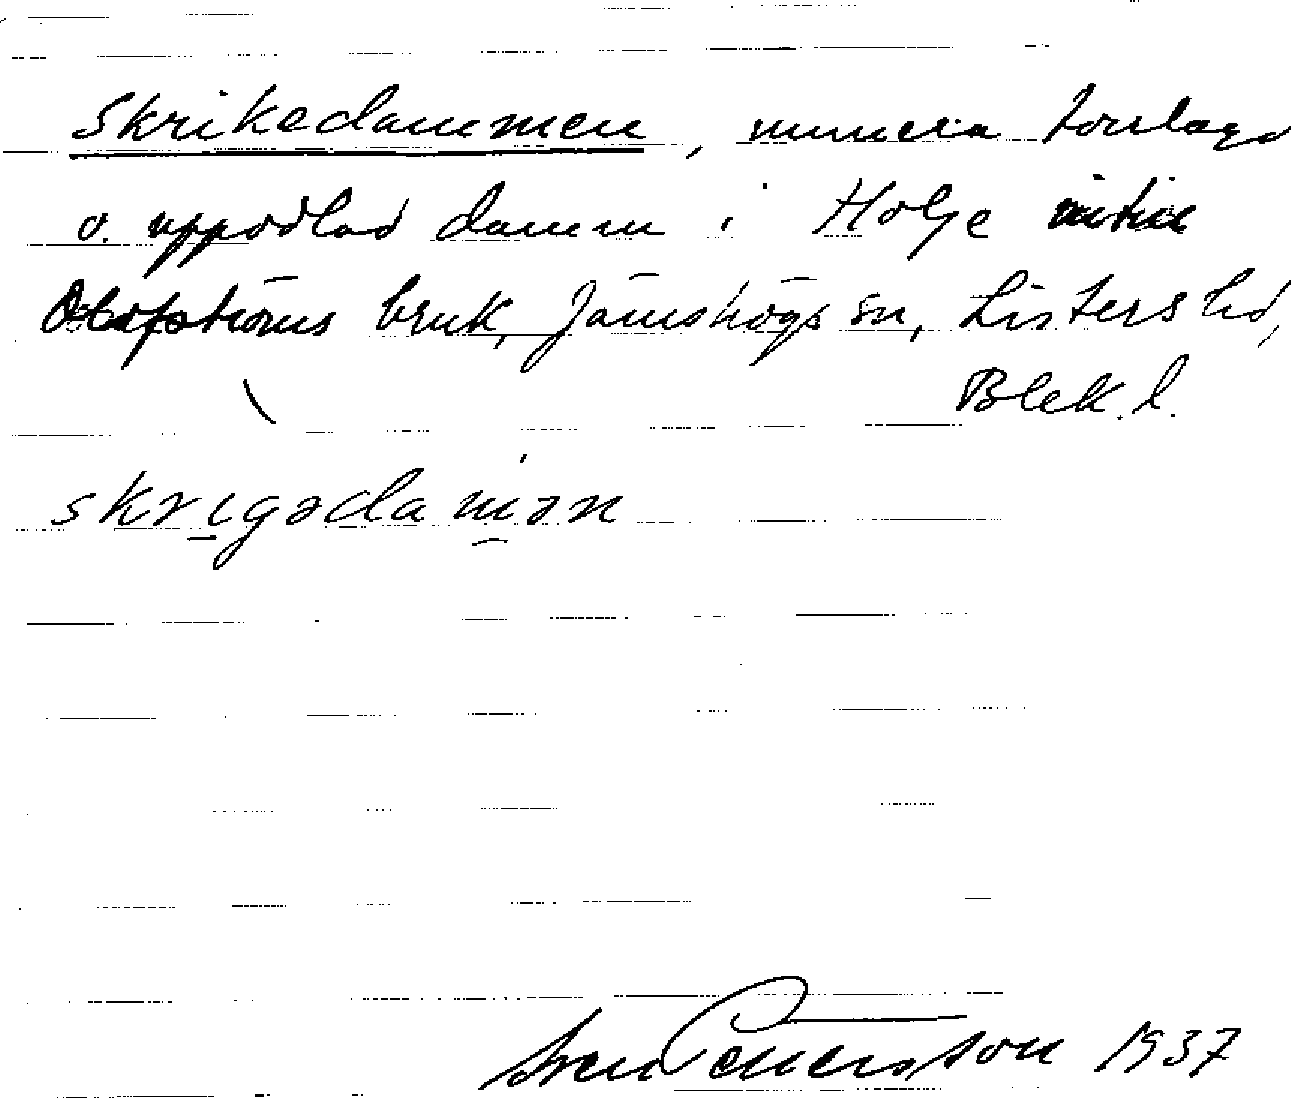 Skrikedammen, numera torrlagd
o. uppodlad damm i Holje intill
Olofströms bruk, Jämshögs sn, Listers hd,
Blek. l.
skrigədamən
Sven Pettersson 1937